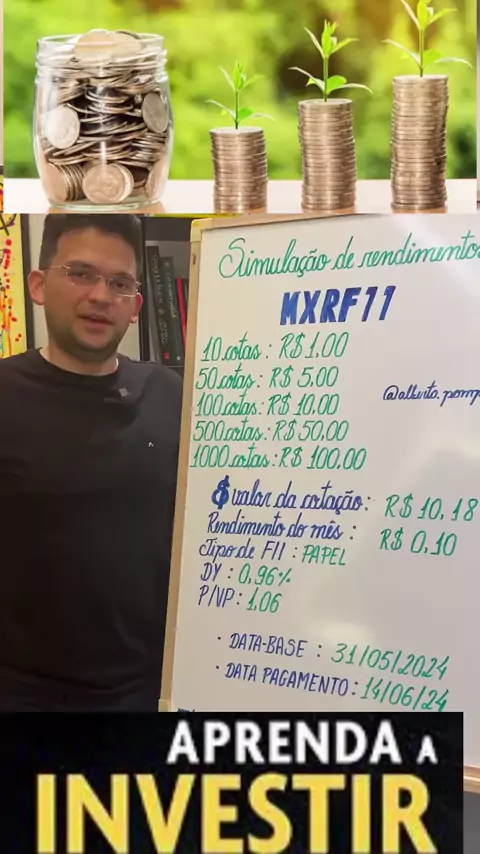 Simulação de rendimentos
MXRF11
10 cotas : R$ 1,00
50 cotas : R$ 5,00
100 cotas : R$ 10,00
500 cotas : R$ 50,00
1000 cotas : R$ 100,00
@alberto.pomp
$ valor da cotação : R$ 10,18
Rendimento do mês : R$ 0,10
Tipo de FII : PAPEL
DY : 0,96%
P/VP : 1,06
• DATA-BASE : 31/05/2024
• DATA PAGAMENTO : 14/06/24
APRENDA A
INVESTIR